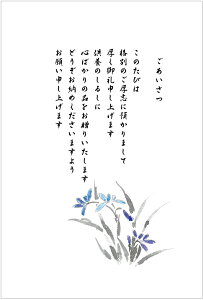 ごあいさつ
このたびは
格別のご厚志に預かりまして
厚く御礼申し上げます
供養のしるしに
心ばかりの品をお贈りいたします
どうぞお納めくださいますよう
お願い申し上げます